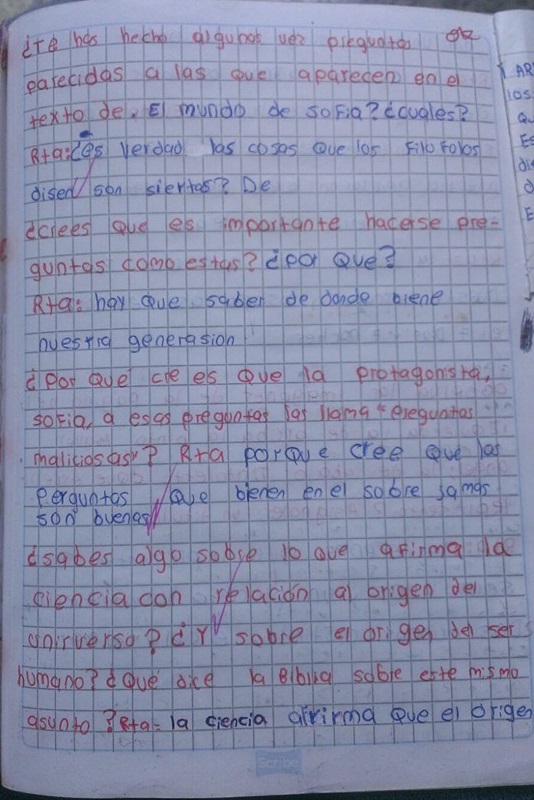 ¿Té has hecho algunas vez preguntas ok
parecidas a las que aparecen en el
texto de. El mundo de sofia? ¿cuales?
Rta: ¿es verdad las cosas que los filofolos
disen son siertas? De
¿crees que es importante hacerse pre-
guntas como estas? ¿por que?
Rta: hay que saber de donde biene
nuestra generasion
¿por qué cre es que la protagonista,
sofia, a esas preguntas las llama "preguntas
maliciosas"? Rta porque cree que las
perguntas que bienen en el sobre jamas
son buenas
¿sabes algo sobre lo que afirma la
ciencia con relación al origen del
unirverso? ¿Y sobre el origen del ser
humano? ¿Qué dice la Biblia sobre este mismo
asunto? Rta= la ciencia afirma que el origen
Scribe
AR
los
Qu
Es
die
d
E